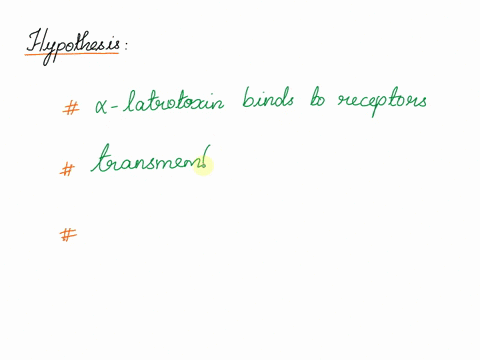 Hypothesis:
# α-latrotoxin binds to receptors
# transmem
#